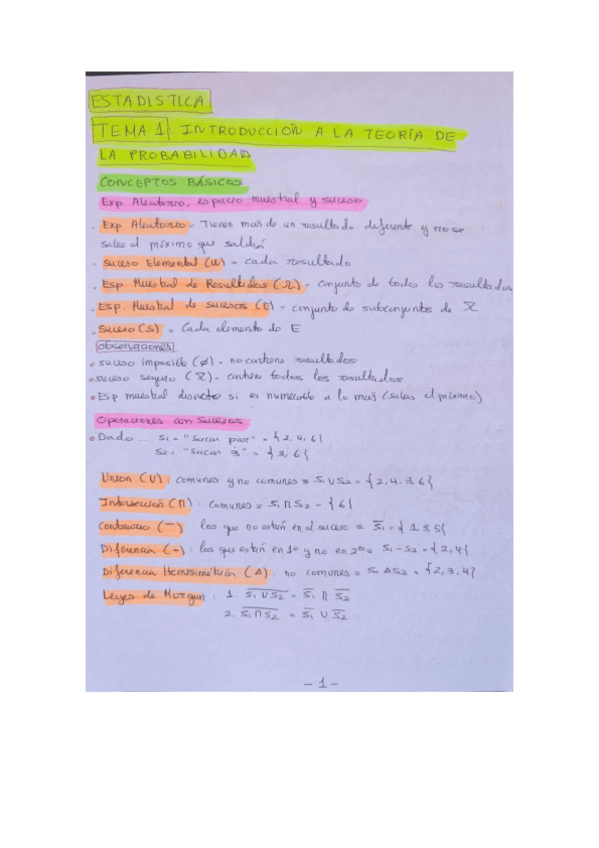 ESTADISTICA
TEMA 1 INTRODUCCIÓN A LA TEORÍA DE
LA PROBABILIDAD
CONCEPTOS BÁSICOS
Exp Aleatorio, espacio muestral y suceso
. Exp Aleatorio = Tienen mas de un resultado diferente y no se
sabe el próximo que saldrá
. Suceso Elemental (ω) = cada resultado
. Esp. Muestral de Resultados (Ω) = conjunto de todos los resultados
. Esp. Muestral de sucesos (E) = conjunto de subconjuntos de Ω
. Suceso (S) = Cada elemento de E
Observaciones
• suceso imposible (∅) = no contiene resultados
• suceso seguro (Ω) = contiene todos los resultados
• Esp muestral discreto si es numerable a lo mas (sabes el próximo)
Operaciones con Sucesos
• Dado ... S1 = "Sacar par" = {2, 4, 6}
S2 = "Sacar 3̇" = {3, 6}
Union (U) : comunes y no comunes = S1 U S2 = {2, 4, 3, 6}
Intersección (∩) : comunes = S1 ∩ S2 = {6}
Contrario (‾) los que no están en el suceso = S̅1 = {1, 3, 5}
Diferencia (-) : los que están en 1º y no en 2º = S1 - S2 = {2, 4}
Diferencia Hemisimétrica (Δ) : no comunes = S1 Δ S2 = {2, 3, 4}
Leyes de Morgan : 1. \overline{S1 U S2} = \overline{S1} ∩ \overline{S2}
2. \overline{S1 ∩ S2} = \overline{S1} U \overline{S2}
- 1 -